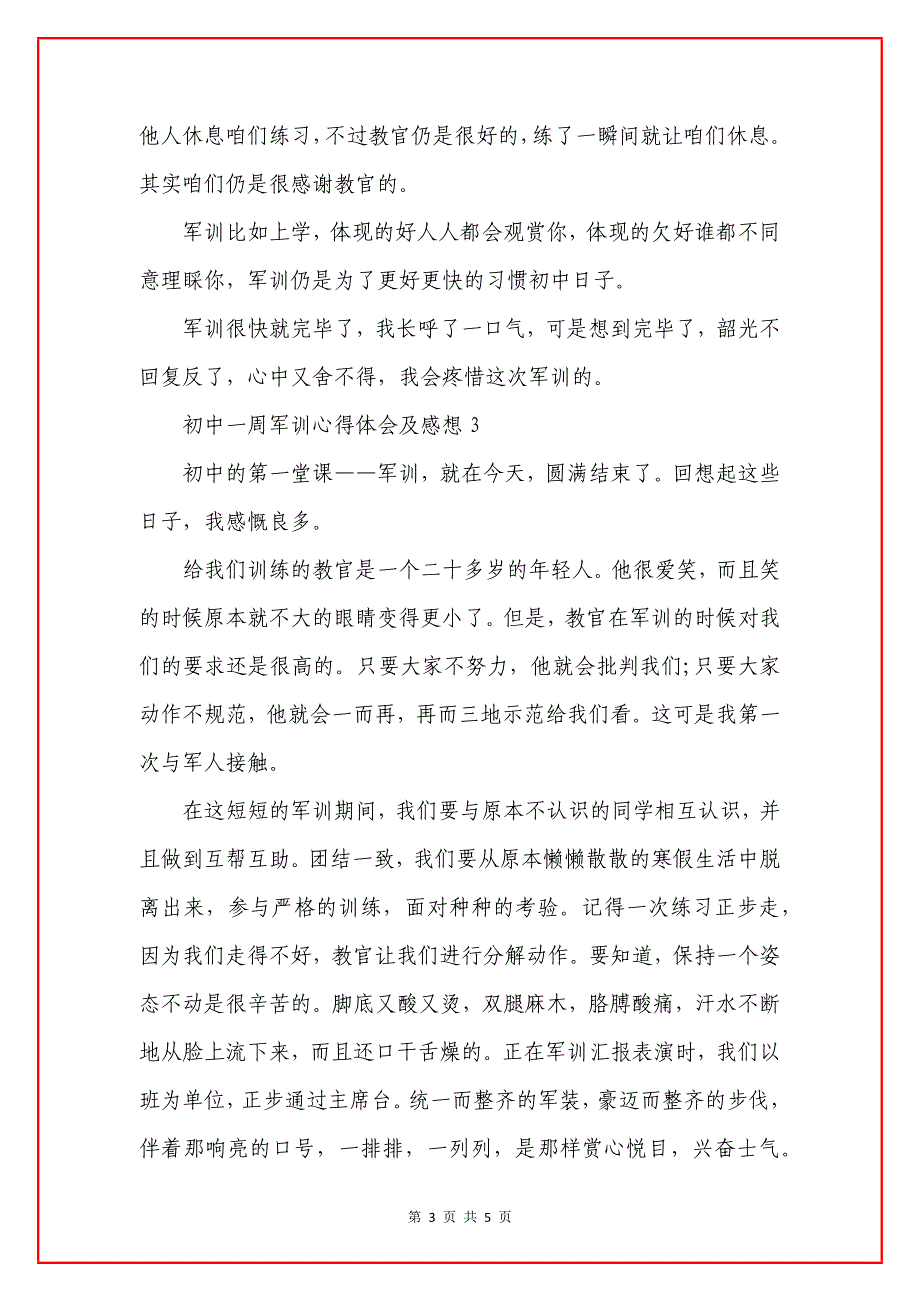 他人休息咱们练习，不过教官仍是很好的，练了一瞬间就让咱们休息。
其实咱们仍是很感谢教官的。
军训比如上学，体现的好人人都会观赏你，体现的欠好谁都不同
意理睬你，军训仍是为了更好更快的习惯初中日子。
军训很快就完毕了，我长呼了一口气，可是想到完毕了，韶光不
回复反了，心中又舍不得，我会疼惜这次军训的。
初中一周军训心得体会及感想 3
初中的第一堂课——军训，就在今天，圆满结束了。回想起这些
日子，我感慨良多。
给我们训练的教官是一个二十多岁的年轻人。他很爱笑，而且笑
的时候原本就不大的眼睛变得更小了。但是，教官在军训的时候对我
们的要求还是很高的。只要大家不努力，他就会批判我们；只要大家
动作不规范，他就会一而再，再而三地示范给我们看。这可是我第一
次与军人接触。
在这短短的军训期间，我们要与原本不认识的同学相互认识，并
且做到互帮互助。团结一致，我们要从原本懒懒散散的寒假生活中脱
离出来，参与严格的训练，面对种种的考验。记得一次练习正步走，
因为我们走得不好，教官让我们进行分解动作。要知道，保持一个姿
态不动是很辛苦的。脚底又酸又烫，双腿麻木，胳膊酸痛，汗水不断
地从脸上流下来，而且还口干舌燥的。正在军训汇报表演时，我们以
班为单位，正步通过主席台。统一而整齐的军装，豪迈而整齐的步伐，
伴着那响亮的口号，一排排，一列列，是那样赏心悦目，兴奋士气。
第 3 页 共 5 页